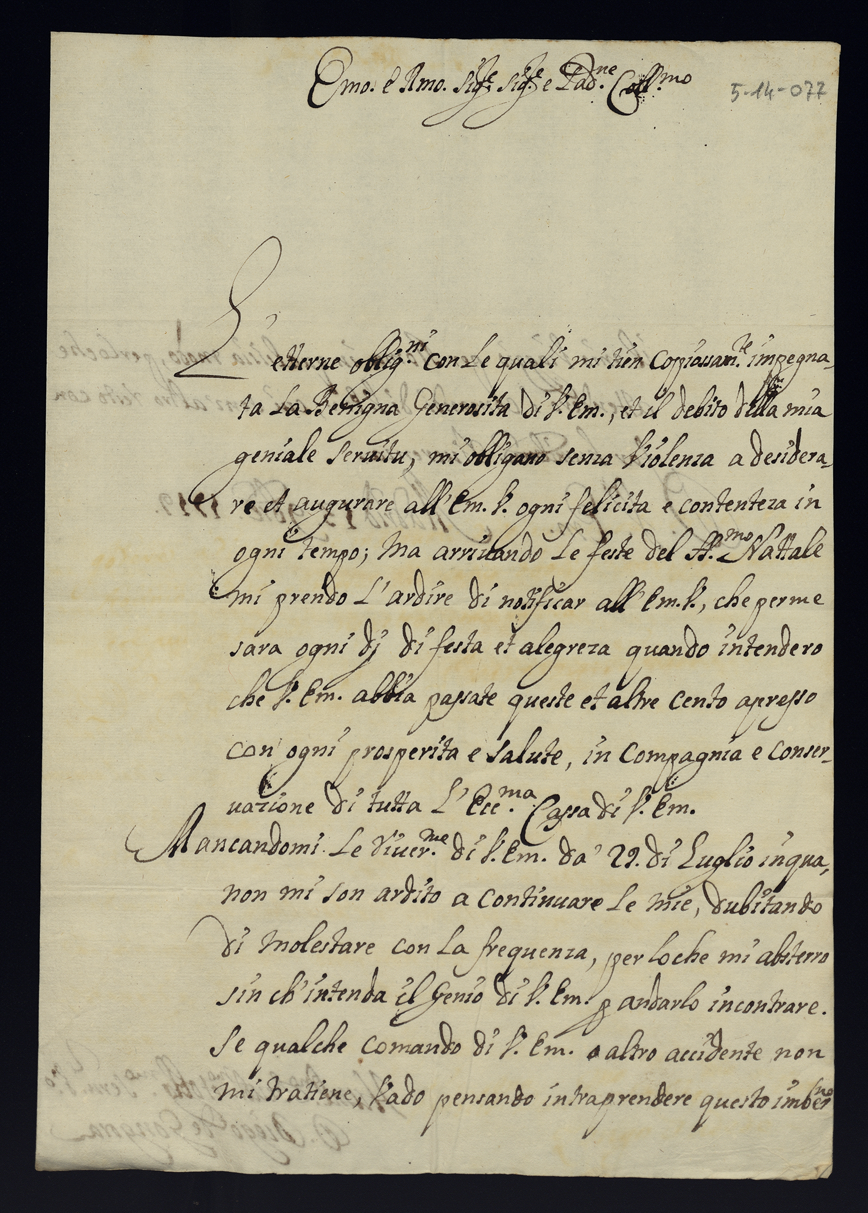 Emo. e Rmo. Sig.re Sig.re e Pad.ne Coll.mo
5-14-077
L'etterne oblig.ni con le quali mi tien Coppiavam.te impegna-
ta la Benigna Generosita di V. Em., et il debito della mia
geniale servitu, mi obligano senza Violenza a desidera-
re et augurare all'Em. V. ogni felicita e contenteza in
ogni tempo; ma arrivando le feste del SS.mo Nattale
mi prendo l'ardire di notificar all'Em. V., che per me
sara ogni dj di festa et alegreza quando intendero
che V. Em. abbia passate queste et altre cento apresso
con ogni prosperita e salute, in Compagnia e conser-
vazione di tutta l'Ecc.ma Cassa di V. Em.
Mancandomi le River.me di V. Em. da' 29. di Luglio in qua,
non mi son ardito a continuare le mie, dubitando
di molestare con la frequenza, per loche mi absterro
sin ch'intenda il Genio di V. Em. p andarlo incontrare.
Se qualche comando di V. Em. o altro accidente non
mi tratiene, Vado pensando intraprendere questo